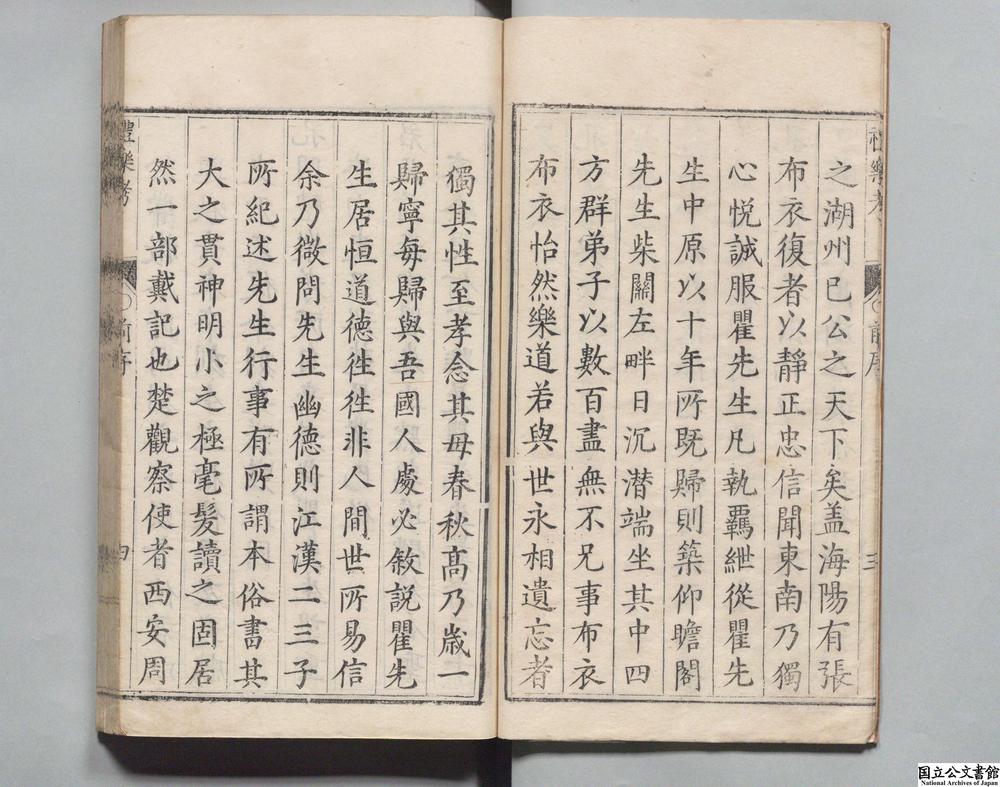 之湖州已公之天下矣盖海陽有張
布衣復者以靜正忠信聞東南乃獨
心悦誠服瞿先生凡執覊紲從瞿先
生中原以十年所既歸則築仰瞻閣
先生柴關左畔日沉潜端坐其中四
方群弟子以數百盡無不兄事布衣
布衣怡然樂道若與世永相遺忘者
獨其性至孝念其母春秋高乃歲一
歸寧每歸與吾國人處必敘説瞿先
生居恒道德徃徃非人間世所易信
余乃微問先生幽德則江漢二三子
所紀述先生行事有所謂本俗書其
大之貫神明小之極毫髮讀之固居
然一部戴記也楚觀察使者西安周
禮樂考
前序
四
三
国立公文書館
National Archives of Japan